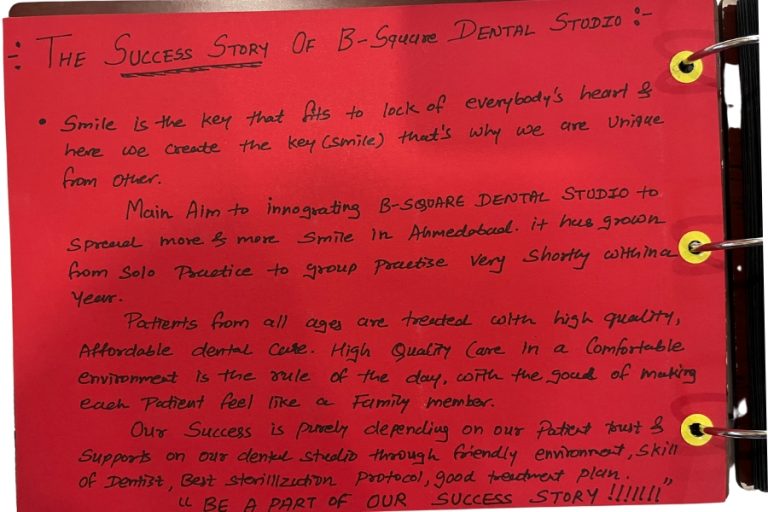 -: THE SUCCESS STORY OF B-SQUARE DENTAL STUDIO :-
• Smile is the key that fits to lock of everybody's heart &
here we create the key (smile) that's why we are unique
from other.
Main Aim to innograting B-SQUARE DENTAL STUDIO to
spread more & more smile in Ahmedabad. it has grown
from solo Practice to group Practise very shortly within a
year.
Patients from all ages are treated with high quality,
Affordable dental care. High Quality Care in a Comfortable
environment is the rule of the day, with the goal of making
each Patient feel like a Family member.
Our Success is purely depending on our Patient trust &
Supports on our dental studio through friendly environment, skill
of Dentist, Best sterillization Protocol, good treatment plan.
"BE A PART OF OUR SUCCESS STORY !!!!!!!"